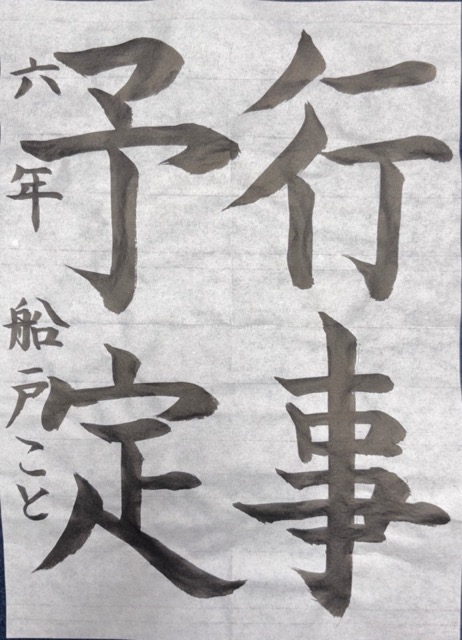 行事
予定
六年 船戸こと